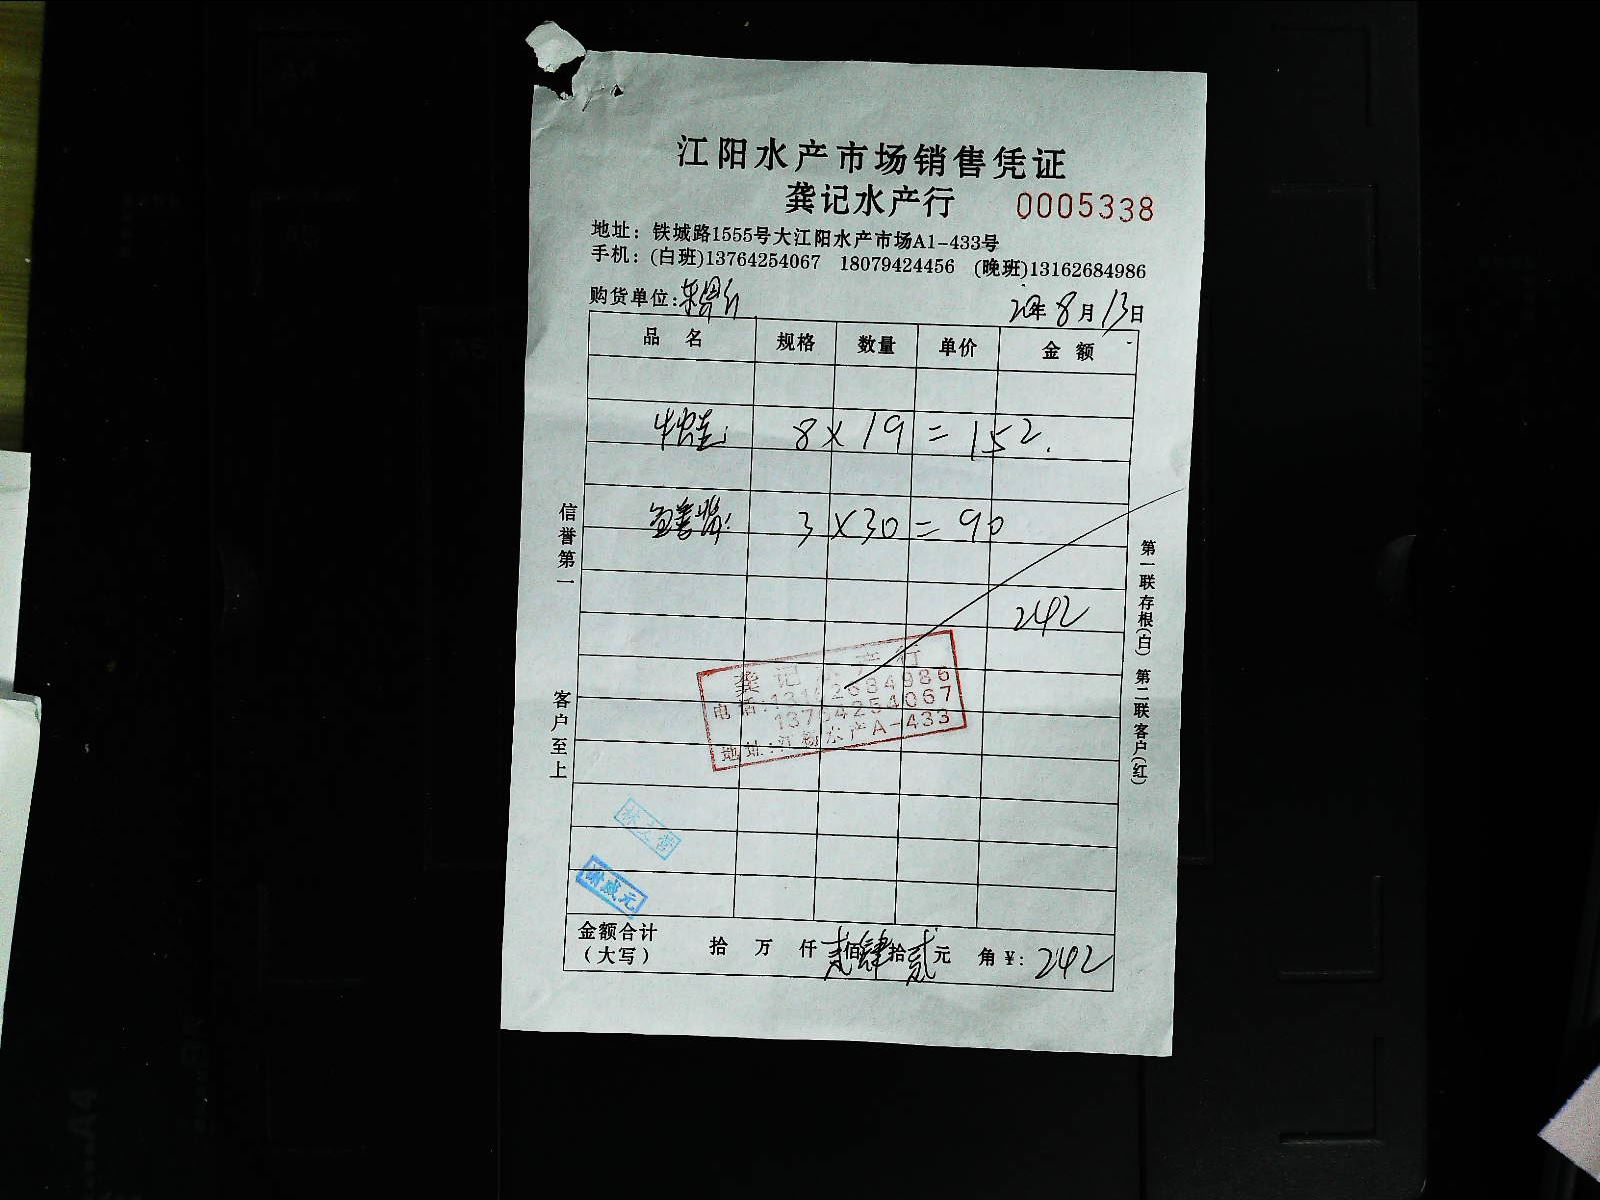 江阳水产市场销售凭证
龚记水产行 0005338
地址：铁城路1555号大江阳水产市场A1-433号
手机：(白班)13764254067 18079424456 (晚班)13162684986
购货单位: 年8月13日
品 名 规格 数量 单价 金 额
牛蛙: 8×19=152.
3×30=90
242
龚记水产行
电话:13162684986
13764254067
地址:江阳水产A-433
谢成元
金额合计（大写） 拾 万 仟 贰佰肆拾贰元 角 ¥: 242
信誉第一 客户至上
第一联存根(白) 第二联客户(红)